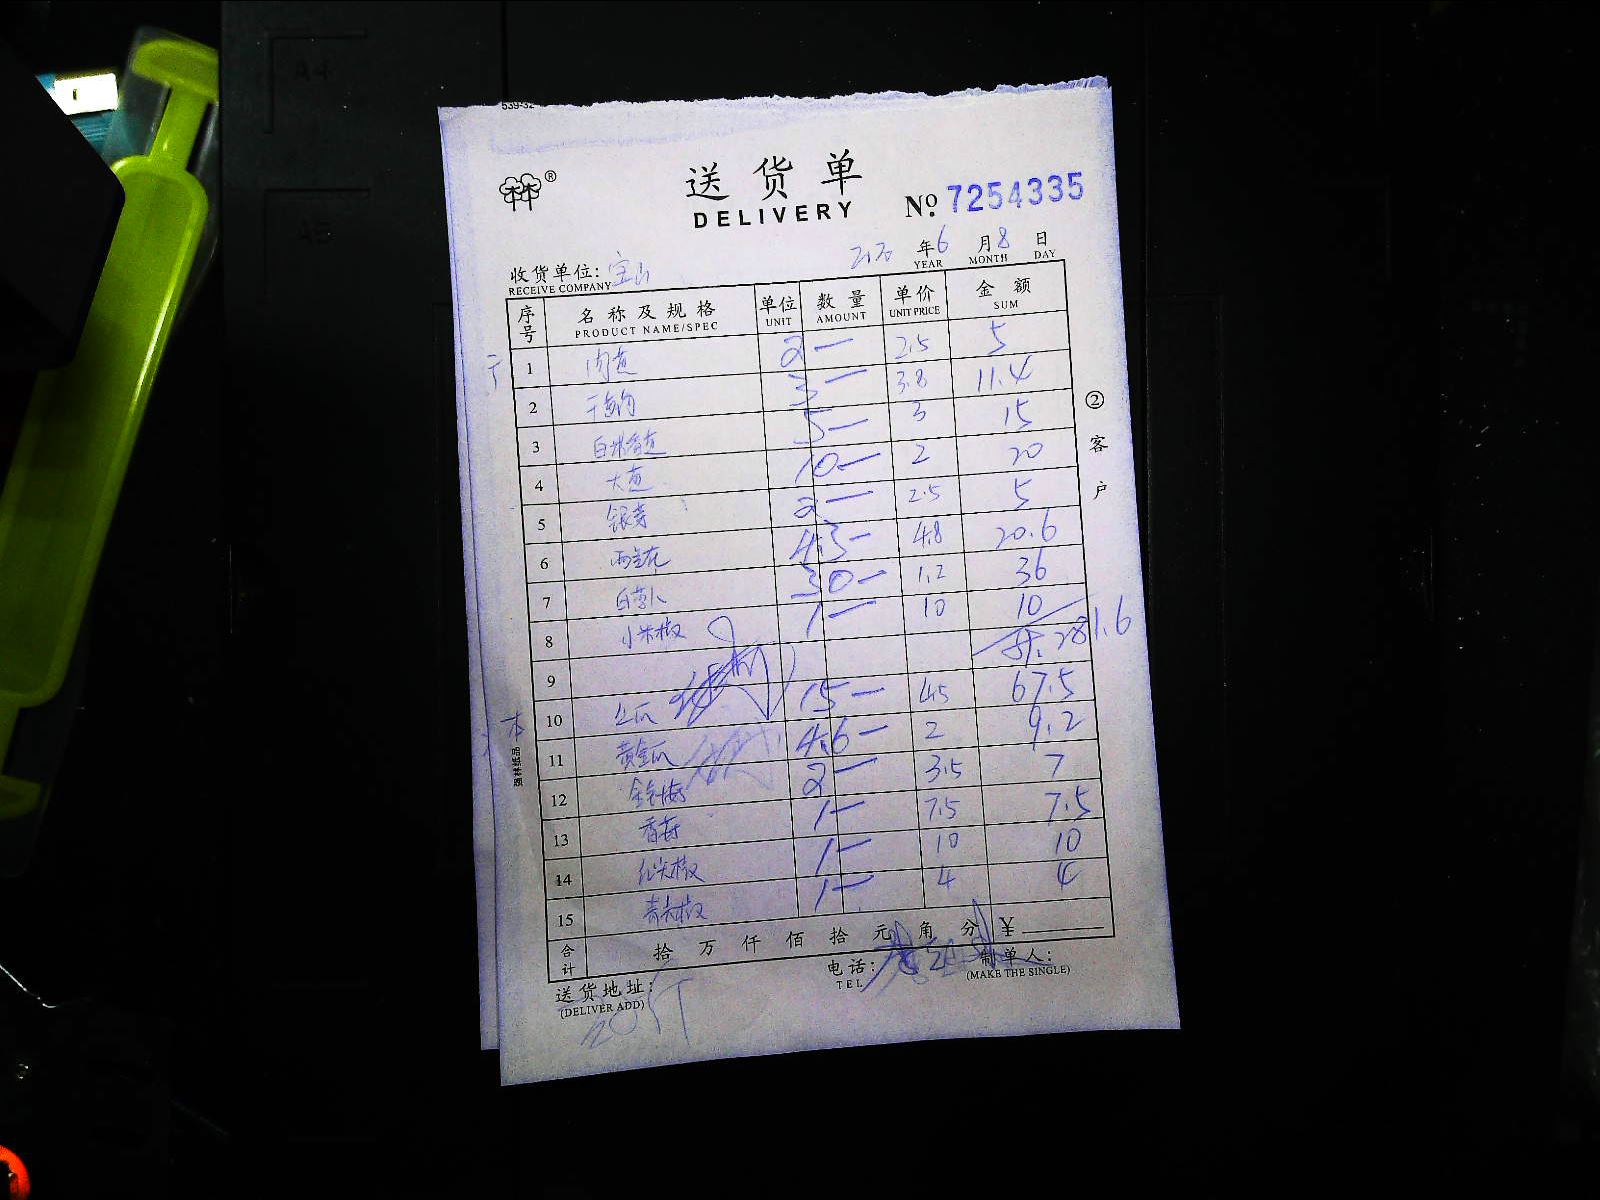 539-32
®
送 货 单
DELIVERY
Nº. 7254335
收货单位: 宝山
RECEIVE COMPANY
年 6 月 8 日
YEAR MONTH DAY
序号 名称及规格 单位 数量 单价 金额
PRODUCT NAME/SPEC UNIT AMOUNT UNIT PRICE SUM
1 肉葱 2 — 2.5 5
2 干葱肉 3 — 3.8 11.4
3 5 — 3 15
4 大葱 10 — 2 20
5 银芽 2 — 2.5 5
6 西兰花 4.3 — 4.8 20.6
7 白萝卜 30 — 1.2 36
8 小米椒 1 — 10 10
9 281.6
10 15 — 4.5 67.5
11 黄金瓜 4.6 — 2 9.2
12 金针菇 2 — 3.5 7
13 香菇 1 — 7.5 7.5
14 红尖椒 1 — 10 10
15 青尖椒 1 — 4 4
合计 拾 万 仟 佰 拾 元 角 分 ¥
送货地址: 电话: 制单人:
(DELIVER ADD) TEL (MAKE THE SINGLE)
② 客户